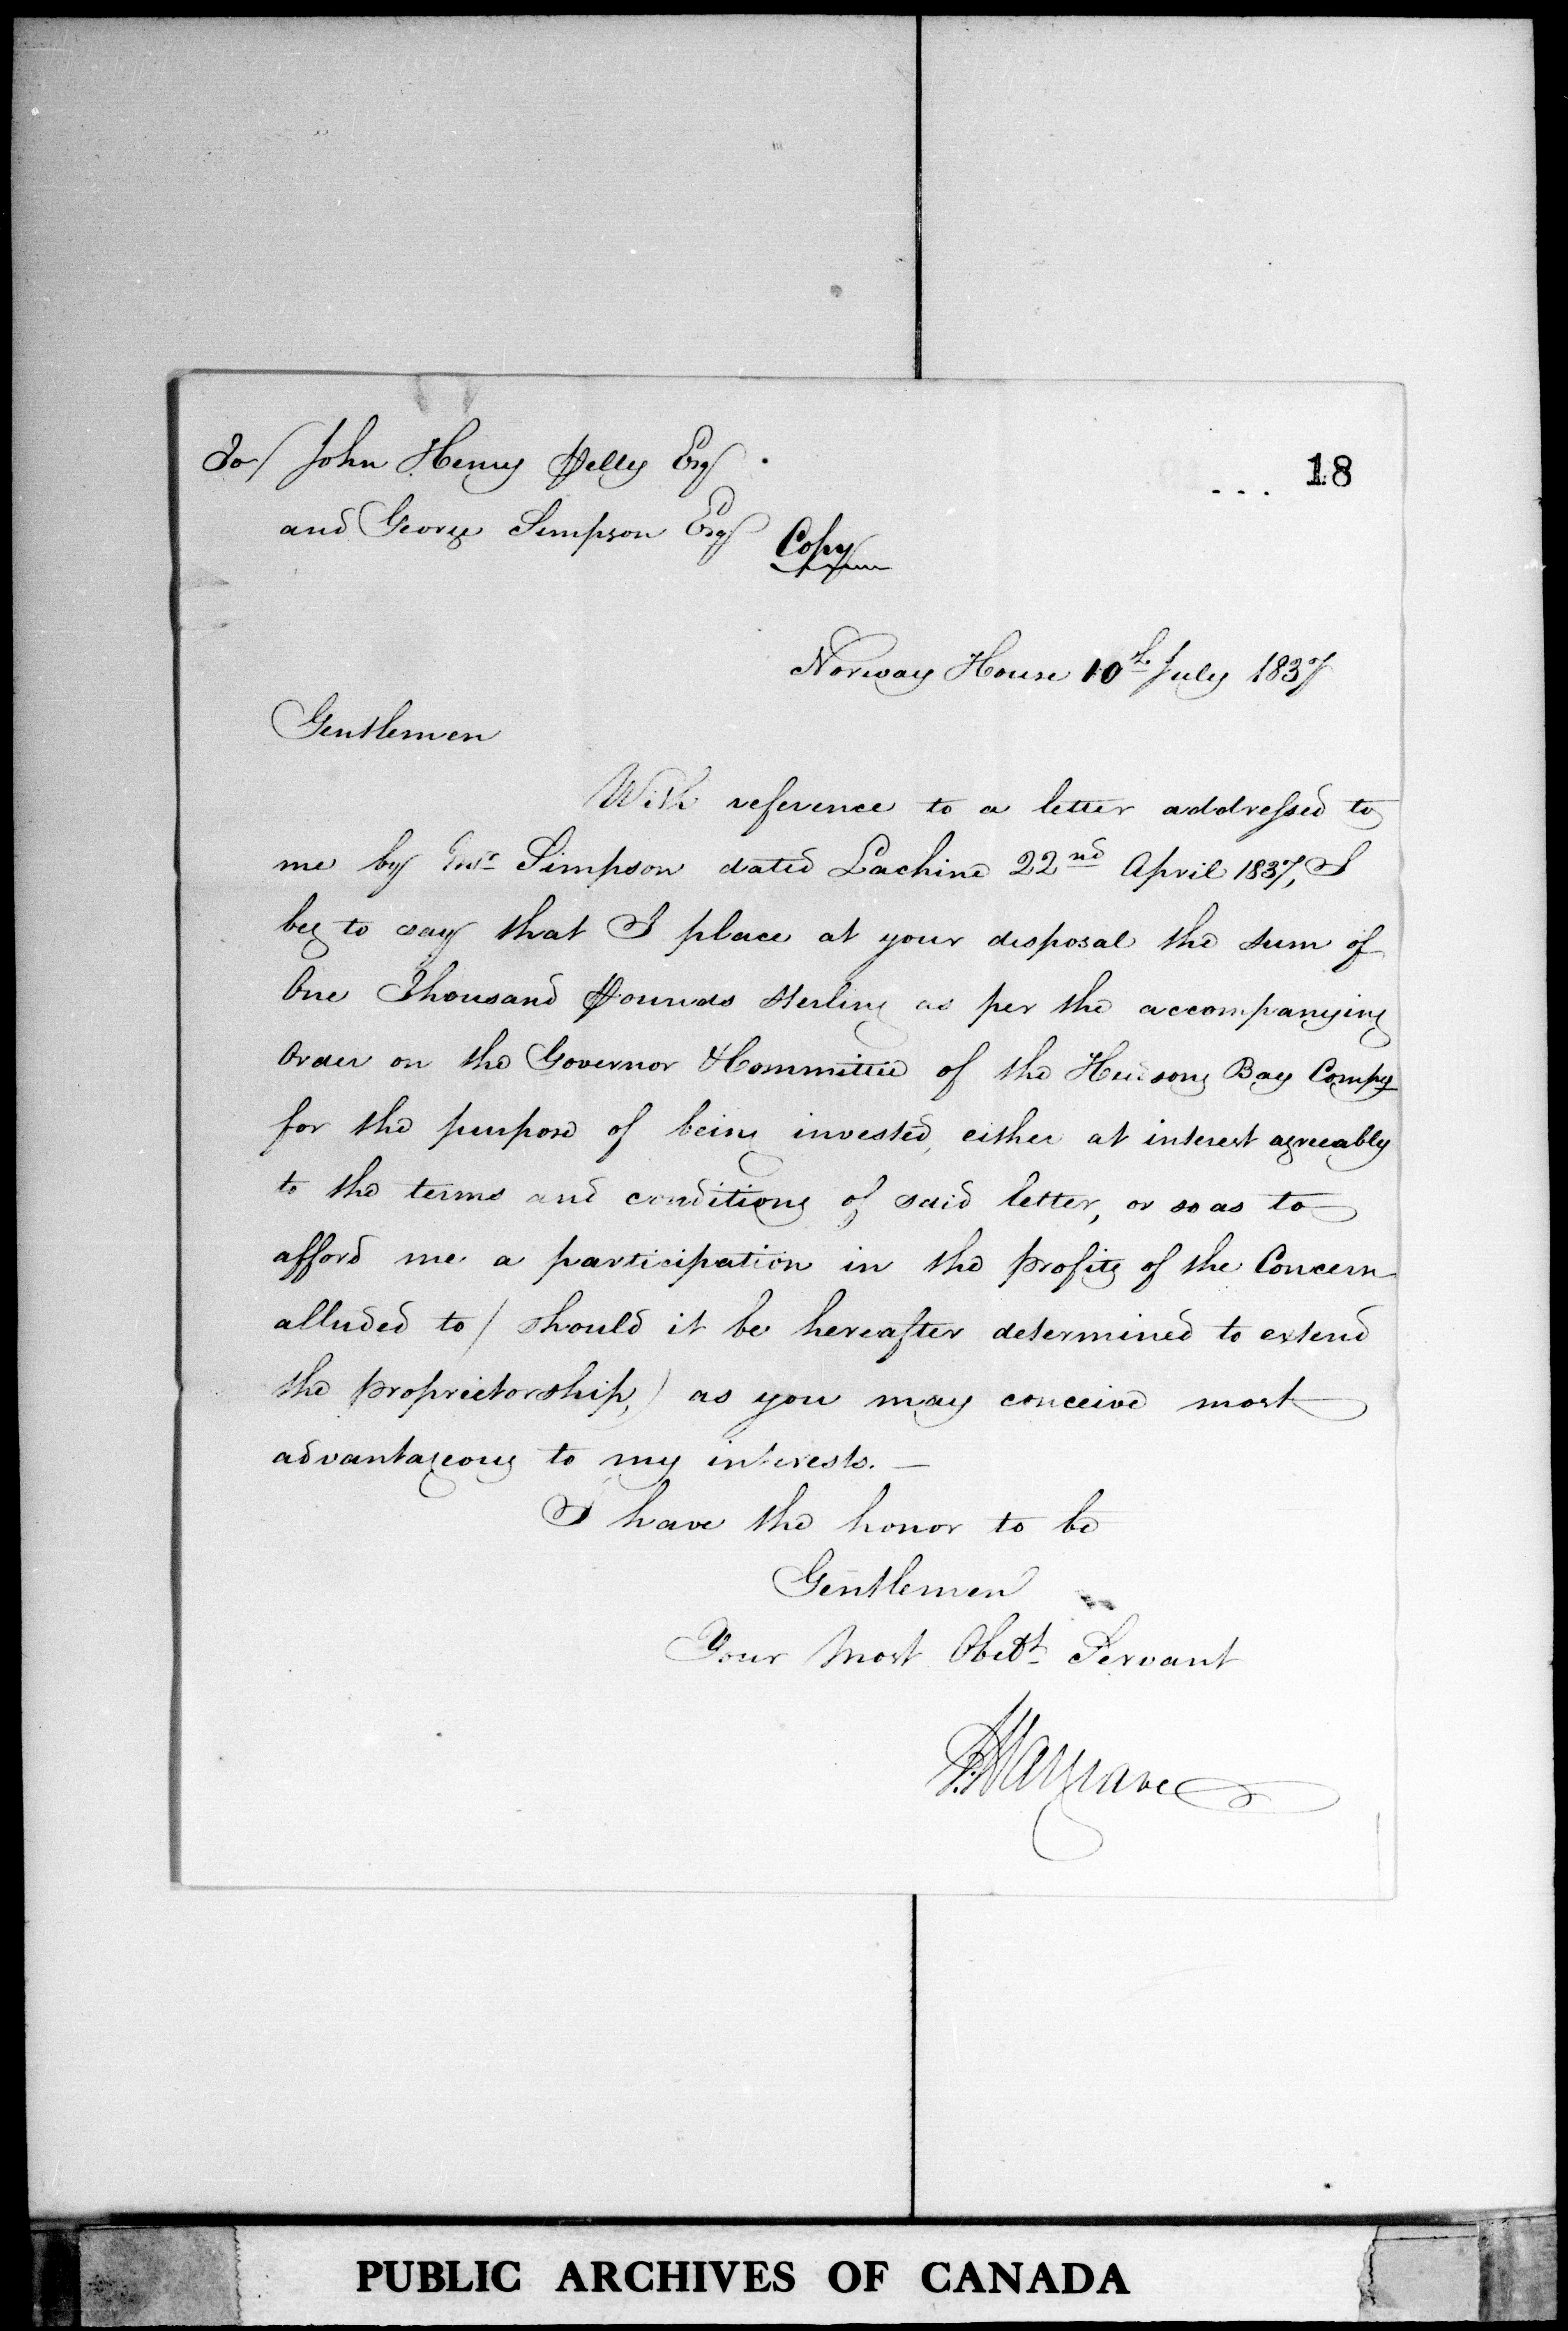 To/ John Henry Pelly Esq.
... 18
and George Simpson Esq
Copy
Norway House 10th July 1837
Gentlemen
With reference to a letter addressed to
me by Mr Simpson dated Lachine 22nd April 1837, I
beg to say that I place at your disposal the sum of
One Thousand Pounds Sterling as per the accompanying
Order on the Governor & Committee of the Hudsons Bay Compy
for the purpose of being invested, either at interest agreeably
to the terms and conditions of said letter, or so as to
afford me a participation in the profits of the Concern
alluded to / should it be hereafter determined to extend
the proprietorship,) as you may conceive most
advantageous to my interests. —
I have the honor to be
Gentlemen
Your Most Obedt Servant
J. Hargrave
PUBLIC ARCHIVES OF CANADA